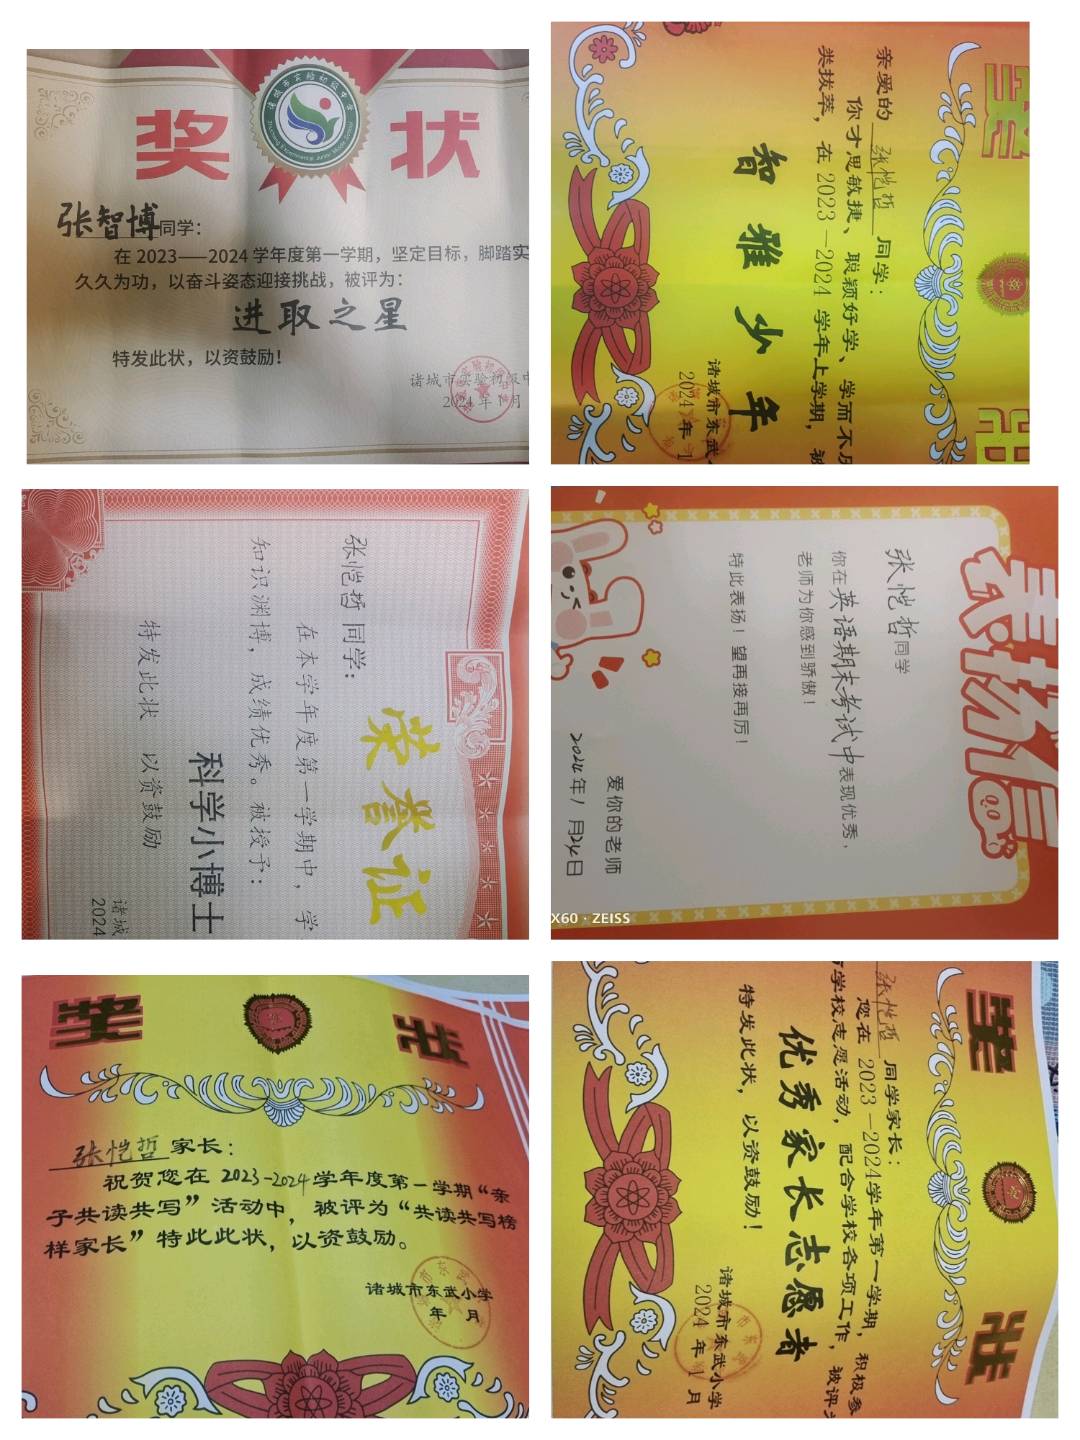 奖 状
张智博同学：
在 2023——2024 学年度第一学期，坚定目标，脚踏实
久久为功，以奋斗姿态迎接挑战，被评为：
进取之星
特发此状，以资鼓励！
诸城市实验初级中
2024 年 1 月
亲爱的 张恺哲 同学：
你才思敏捷、聪颖好学、学而不厌
类拔萃，在 2023—2024 学年上学期，被
智雅少年
诸城市东武小
2024年1
荣誉证
张恺哲 同学：
在本学年度第一学期中，学
知识渊博，成绩优秀。被授予：
科学小博士
特发此状 以资鼓励
诸城
2024
表扬信
张恺哲同学
你在英语期末考试中表现优秀，
老师为你感到骄傲！
特此表扬！望再接再厉！
爱你的老师
2024年1月24日
X60 · ZEISS
奖 状
张恺哲 家长：
祝贺您在 2023-2024学年度第一学期“亲
子共读共写”活动中，被评为“共读共写榜
样家长”特此此状，以资鼓励。
诸城市东武小学
年 月
奖 状
张恺哲 同学家长：
您在 2023—2024学年第一学期，积极参
学校志愿活动，配合学校各项工作，被评
优秀家长志愿者
特发此状，以资鼓励！
诸城市东武小学
2024 年 1 月